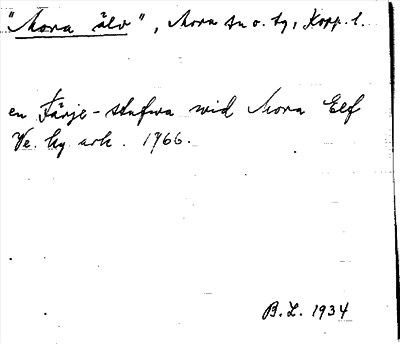 "Mora älv", Mora sn o. tg, Kopp. l.
en Färje-stufwa wid Mora Elf
Ve. ky ark. 1766.
B.L. 1934